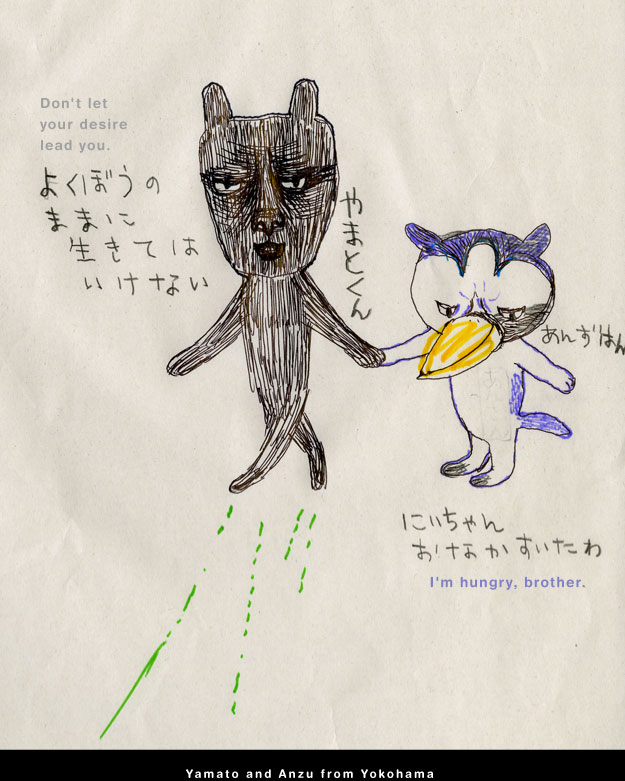 Don't let
your desire
lead you.
よくぼうの
ままに
生きては
いけない
やまとくん
あんずはん
にいちゃん
おなかすいたわ
I'm hungry, brother.
Yamato and Anzu from Yokohama